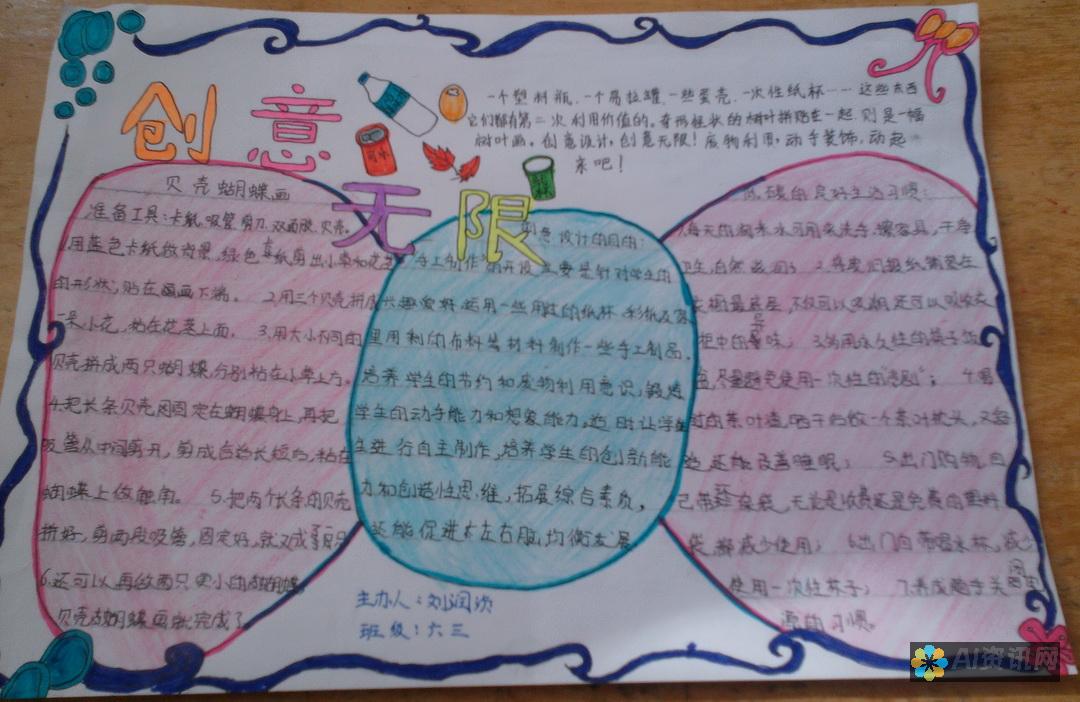 创意
无限
一个塑料瓶、一个易拉罐、一些蛋壳、一次性纸杯……这些东西
它们都有第二次利用价值的。奇形怪状的树叶拼贴在一起,则是一幅
树叶画。创意设计,创意无限!废物利用,动手装饰,动起
来吧!
可乐
贝壳蝴蝶画
准备工具:卡纸、吸管、剪刀、双面胶、贝壳。
1.用蓝色卡纸做背景,绿色卡纸剪出小草和花茎
的形状,贴在画面下端。 2.用三个贝壳拼成
一朵小花,粘在花茎上面。 3.用大小不同的
贝壳拼成两只蝴蝶分别粘在小草上方。
4.把长条贝壳用固定在蝴蝶身上,再把
吸管从中间剪开,剪成合适长短的,粘在
蝴蝶上做触角。 5.把两个长条的贝壳
拼好,剪两段吸管,固定好,就又成了
6.还可以再做两只更小的蝴蝶,
贝壳蝴蝶画就完成了
创意设计的目的:
手工制作的开设主要是针对学生的
兴趣爱好,运用一些用过的纸杯、彩纸及家
里用剩的布料等材料制作一些手工制品。
培养学生的节约和废物利用意识,锻炼
学生的动手能力和想象能力,适时让学
生进行自主制作,培养学生的创新能
力和创造性思维,拓展综合素质,
还能促进左右脑均衡发展
低碳的良好生活习惯:
1.每天的淘米水可用来洗手、擦家具,干净
卫生,自然滋润; 2.将废旧报纸铺垫在
衣橱最底层,不仅可以吸潮,还可以吸收衣
柜中的异味; 3.尚用永久性的筷子饭
盒,尽量避免使用一次性的
过的茶叶渣,晒干后做一个茶叶枕头,又舒
适,还能改善睡眠; 5.出门购物,自
己带环保袋,无论是收费还是免费的塑料
袋,都减少使用; 6.出门自带喝水杯,减少
使用一次性杯子; 7.养成随手关闭电
源的习惯。
主办人:刘润
班级:六三
AI资讯网